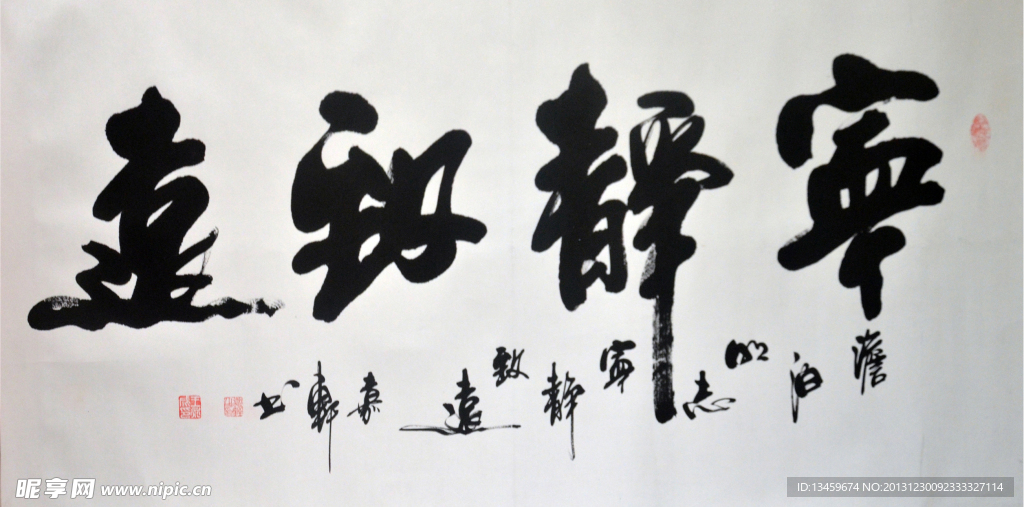 寧靜致遠
澹泊明志寧靜致遠嘉軒书
昵享网 www.nipic.cn
ID:13459674 NO:20131230092333327114